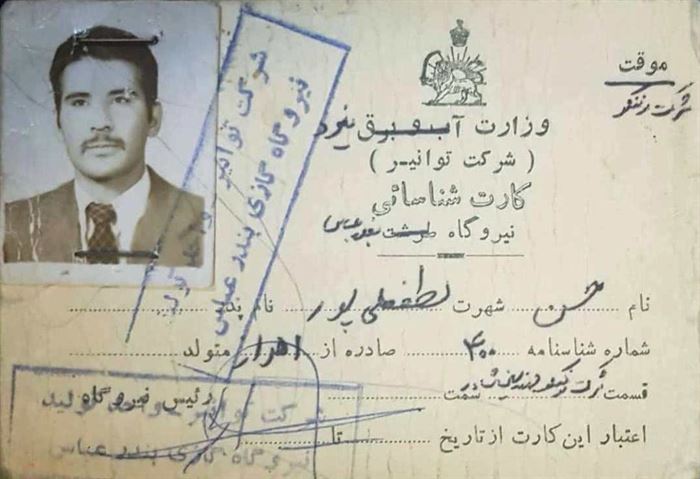 موقت
شرکت زنتکو
وزارت آب و برق نیرو
( شرکت توانیر )
کارت شناسائی
نیروگاه طرشت بندرعباس
نام حسن شهرت لطفعلی پور نام پدر
شماره شناسنامه ۴۰۰ صادره از اهواز متولد
قسمت شرکت سمت
رئیس نیروگاه
اعتبار این کارت از تاریخ تا
شرکت توانیر واحد تولید
نیروگاه گازی بندر عباس
شرکت توانیر واحد تولید
نیروگاه گازی بندر عباس